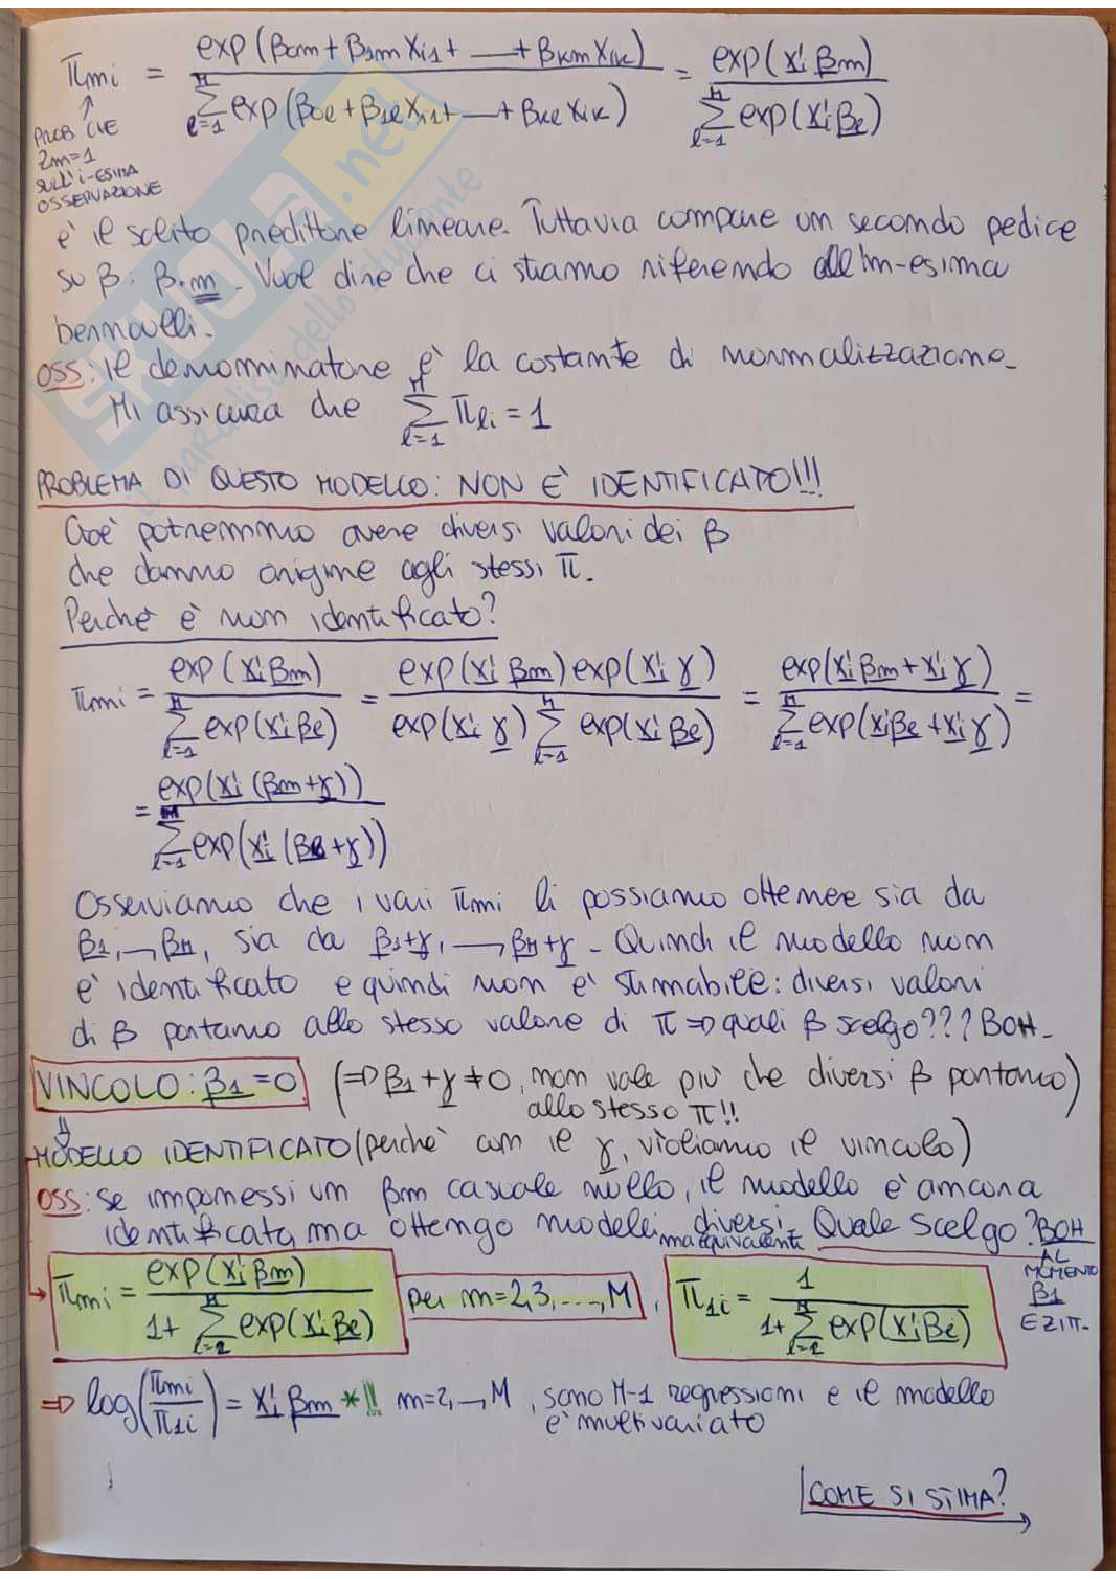 πmi = exp(β0m + β1m Xi1 + — + βkm Xik) / Σ_{l=1}^{M} exp(β0l + β1l Xi1 + — + βkl Xik) = exp(x'i βm) / Σ_{l=1}^{M} exp(x'i βl)
↑
PROB CHE
Zm=1
SULL'i-ESIMA
OSSERVAZIONE
è il solito predittore lineare. Tuttavia compare un secondo pedice
su β: β·m. Vuol dire che ci stiamo riferendo all'm-esima
bernoulli.
OSS: il denominatore è la costante di normalizzazione.
Mi assicura che Σ_{l=1}^{M} πli = 1
PROBLEMA DI QUESTO MODELLO: NON È IDENTIFICATO!!!
Cioè potremmo avere diversi valori dei β
che danno origine agli stessi π.
Perchè è non identificato?
πmi = exp(x'i βm) / Σ_{l=1}^{M} exp(x'i βl) = exp(x'i βm) exp(x'i γ) / exp(x'i γ) Σ_{l=1}^{M} exp(x'i βl) = exp(x'i βm + x'i γ) / Σ_{l=1}^{M} exp(x'i βl + x'i γ) =
= exp(x'i (βm+γ)) / Σ_{l=1}^{M} exp(x'i (βl+γ))
Osserviamo che i vari πmi li possiamo ottenere sia da
β1, —, βM, sia da β1+γ, —, βM+γ. Quindi il modello non
è identificato e quindi non è stimabile: diversi valori
di β portano allo stesso valore di π => quali β scelgo??? BOH.
VINCOLO: β1 = 0 (=> β1 + γ ≠ 0, non vale più che diversi β portano
allo stesso π!!)
⇓
MODELLO IDENTIFICATO (perchè con il γ, violiamo il vincolo)
OSS: se imponessi un βm casuale nullo, il modello è ancora
identificato, ma ottengo modelli diversi. Quale scelgo? BOH
ma equivalenti
AL
MOMENTO
β1
E ZITT.
πmi = exp(x'i βm) / 1 + Σ_{l=2}^{M} exp(x'i βl) per m=2,3,....,M, π1i = 1 / 1 + Σ_{l=2}^{M} exp(x'i βl)
=> log(πmi / π1i) = x'i βm *!! m=2, —, M, sono M-1 regressioni e il modello
è multivariato
COME SI STIMA?
SKUOLA.net
il paradiso dello studente